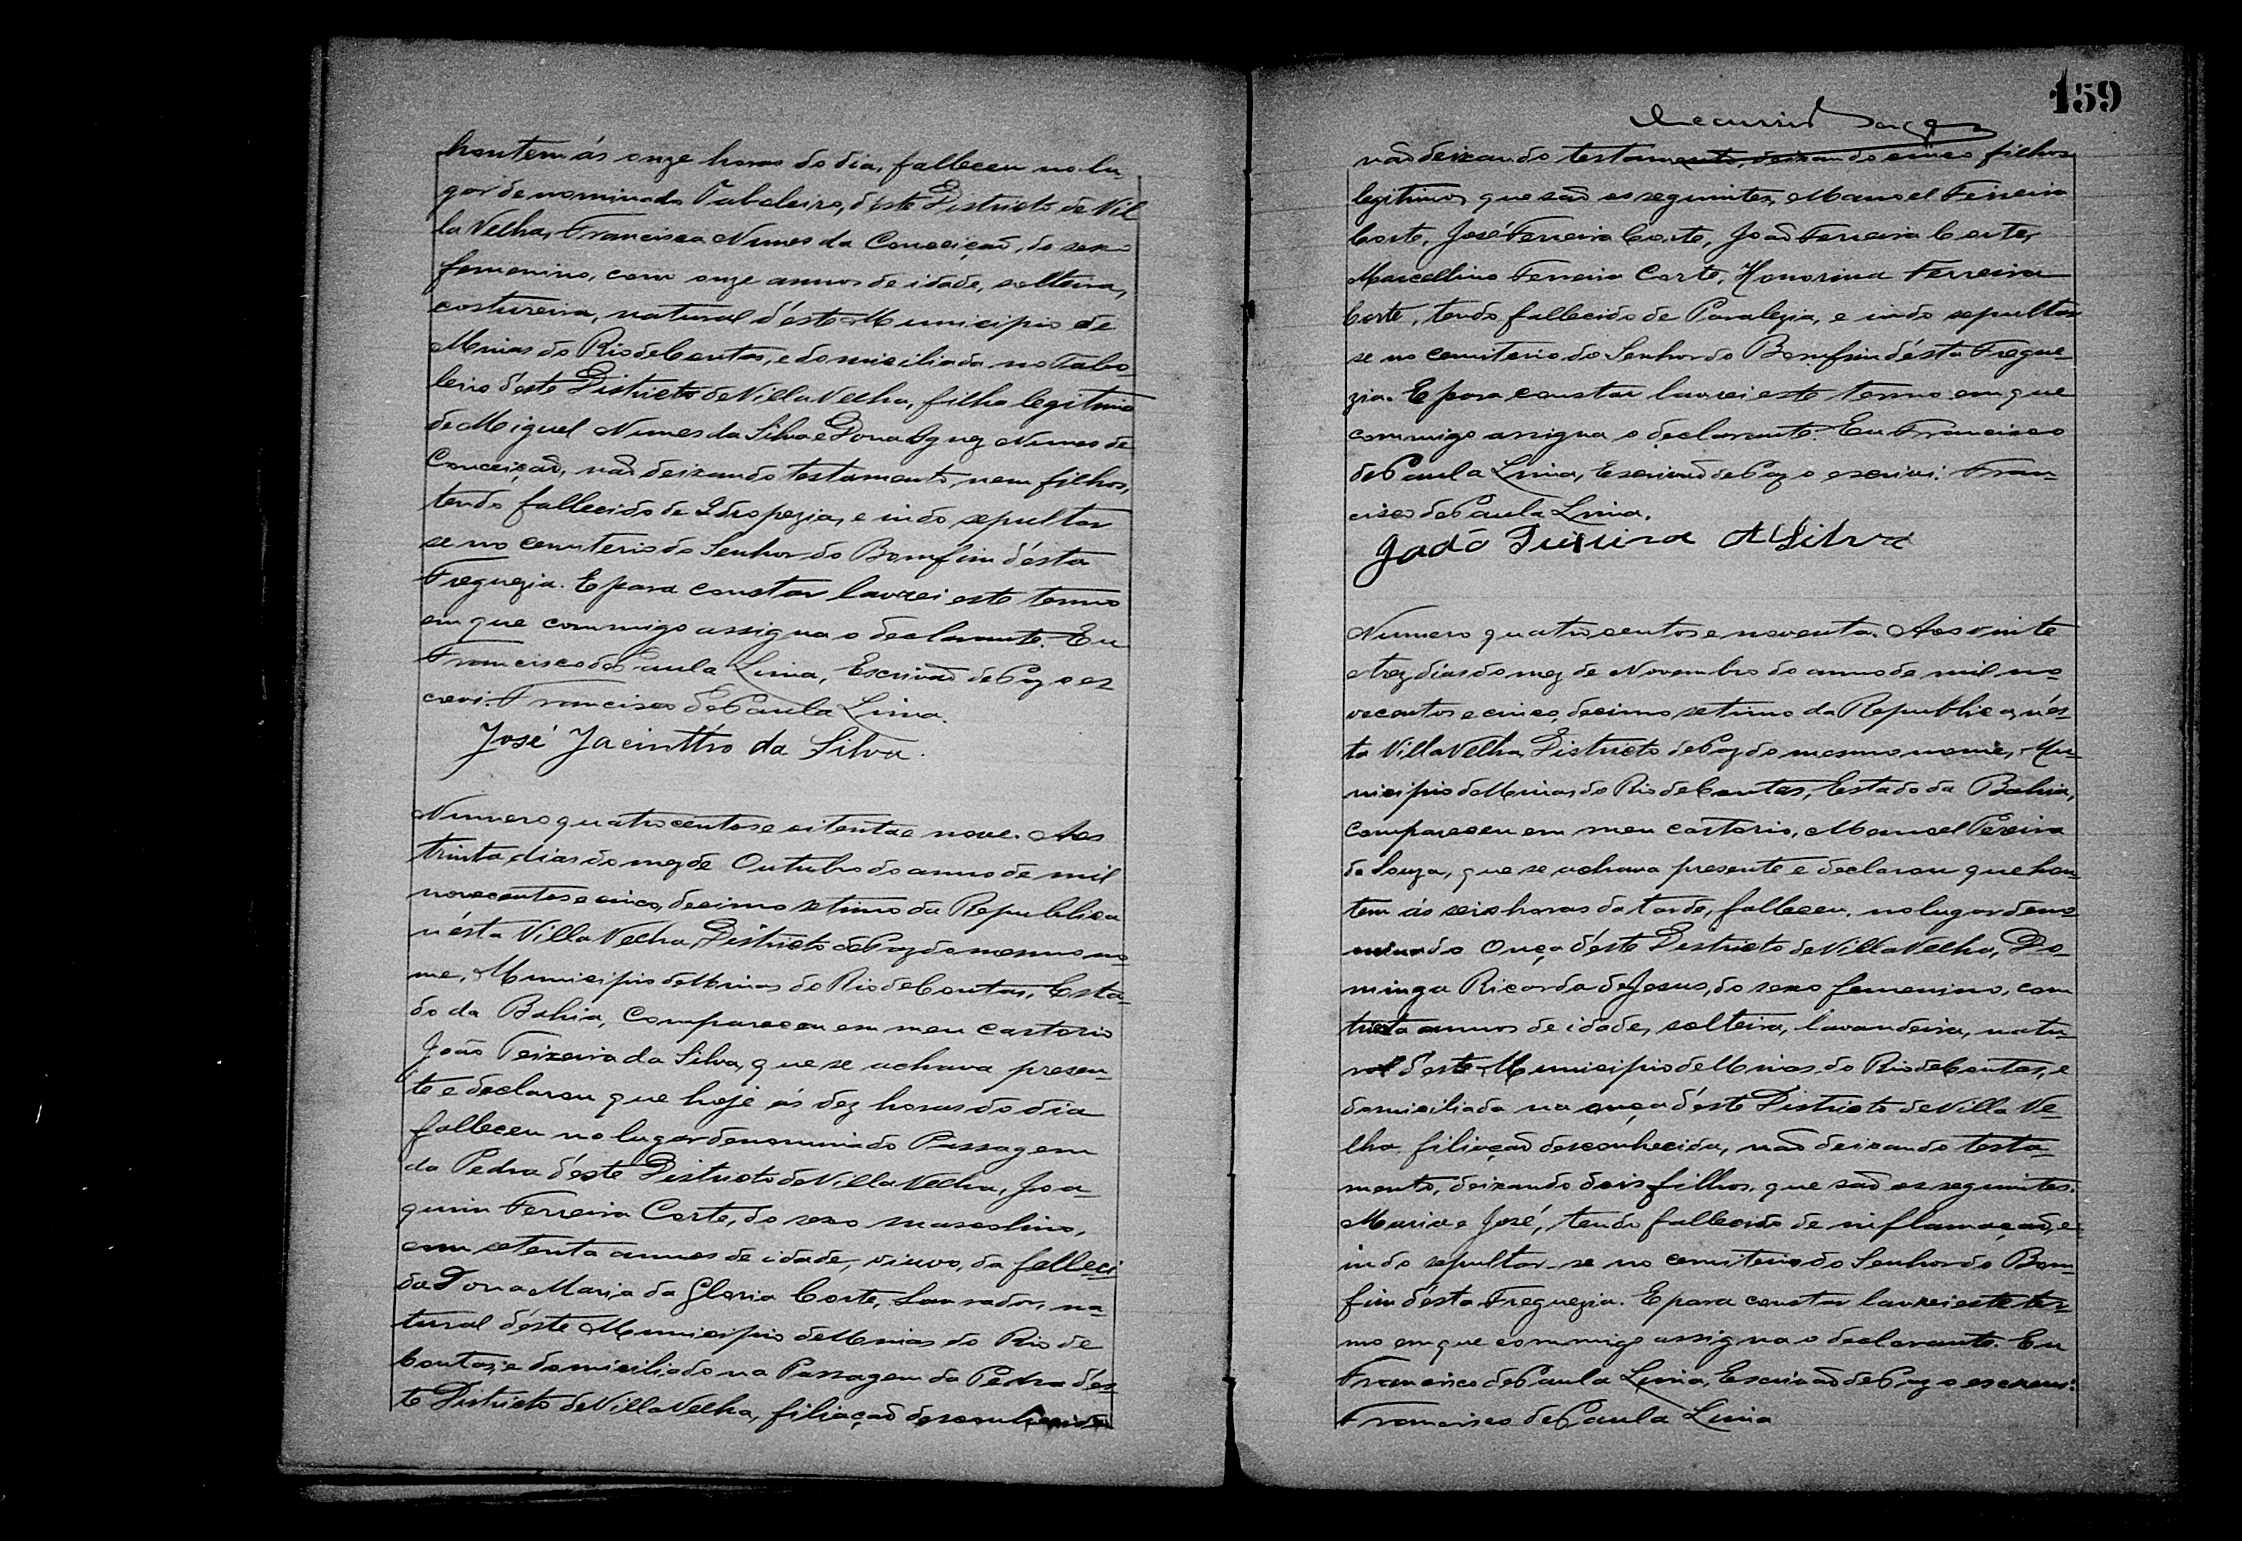 hontem ás onze horas do dia, falleceu no lu-
gar denominado Taboleiro, d'éste Districto de Vil
la Velha, Francisca Nunes da Conceição, do sexo
femenino, com onze annos de idade, solteira,
costureira, natural d'éste Municipio de
Minas do Rio de Contas, e domiciliada no Tabo-
leiro d'éste Districto de Villa Velha, filha legitima
de Miguel Nunes da Silva e Dona Ignez Nunes de
Conceição, não deixando testamento, nem filhos,
tendo fallecido de Idropezia, e indo sepultar
se no cemiterio do Senhor do Bomfim d'ésta
Freguezia. E para constar lavrei este termo
em que commigo assigna o declarante. Eu
Francisco de Paula Lima, Escrivão de Paz o es
crevi. Francisco de Paula Lima.
José Jacinttro da Silva.
Numero quatrocentos e oitenta e nove. Aos
trinta dias do mez de Outubro do anno de mil
novecentos e cinco, decimo setimo da Republica
n'ésta Villa Velha, Districto de Paz do mesmo no-
me, Municipio de Minas do Rio de Contas, Esta-
do da Bahia, compareceu em meu cartorio
João Teixeira da Silva, que se achava presen-
te e declarou que hoje ás dez horas do dia
falleceu no lugar denominado Passagem
da Pedra d'éste Districto de Villa Velha, Joa-
quim Ferreira Corte, do sexo masculino,
com setenta annos de idade, viuvo, da falleci
da Dona Maria da Gloria Corte, Lavrador, na-
tural d'éste Municipio de Minas do Rio de
Contas, e domiciliado na Passagem da Pedra d'és-
te Districto de Villa Velha, filiação desconhecida
159
não deixando testamento, deixando cinco filhos
legitimos, que são os seguintes, Manoel Ferreira
Corte, José Ferreira Corte, João Ferreira Corte,
Marcellino Ferreira Corte, Honorina Ferreira
Corte, tendo fallecido de Paralezia, e indo sepultar
se no cemiterio do Senhor do Bomfim d'ésta Fregue-
zia. E para constar lavrei este termo em que
commigo assigna o declarante. Eu Francisco
de Paula Lima, Escrivão de Paz o escrevi: Fran-
cisco de Paula Lima.
João da Silva
Numero quatrocentos e noventa. Aos vinte
e trez dias do mez de Novembro do anno de mil no-
vecentos e cinco, decimo setimo da Republica, n'és-
ta Villa Velha, Districto de Paz do mesmo nome, Mu-
nicipio de Minas do Rio de Contas, Estado da Bahia,
compareceu em meu cartorio, Manoel Pereira
de Souza, que se achava presente e declarou que hon-
tem ás seis horas da tarde, falleceu, no lugar deno-
minado Onça d'éste Districto de Villa Velha, Do-
minga Ricarda de Jesus, do sexo femenino, com
trinta annos de idade, solteira, lavandeira, natu-
ral d'éste Municipio de Minas do Rio de Contas, e
domiciliada na onça d'éste Districto de Villa Ve-
lha, filiação desconhecida, não deixando testa-
mento, deixando dois filhos, que são os seguintes.
Maria e José, tendo fallecido de inflamação, e
indo sepultar-se no cemiterio do Senhor do Bom-
fim d'ésta Freguezia. E para constar lavrei este ter-
mo em que commigo assigna o declarante. Eu
Francisco de Paula Lima, Escrivão de Paz o escrevi:
Francisco de Paula Lima